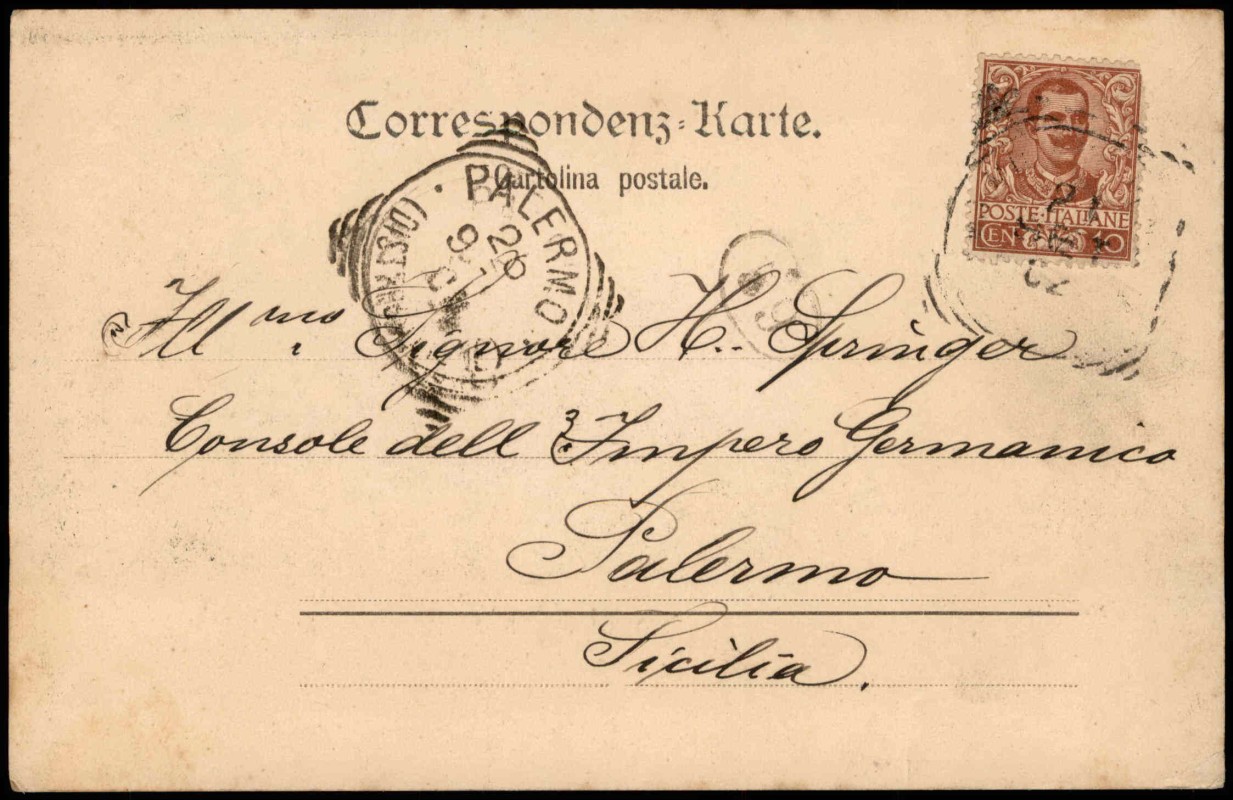 Correspondenz-Karte.
Cartolina postale.
POSTE·ITALIANE
CEN 10
PALERMO
Ill mo Signore H. Springer
Console dell' Impero Germanico
Palermo
Sicilia.